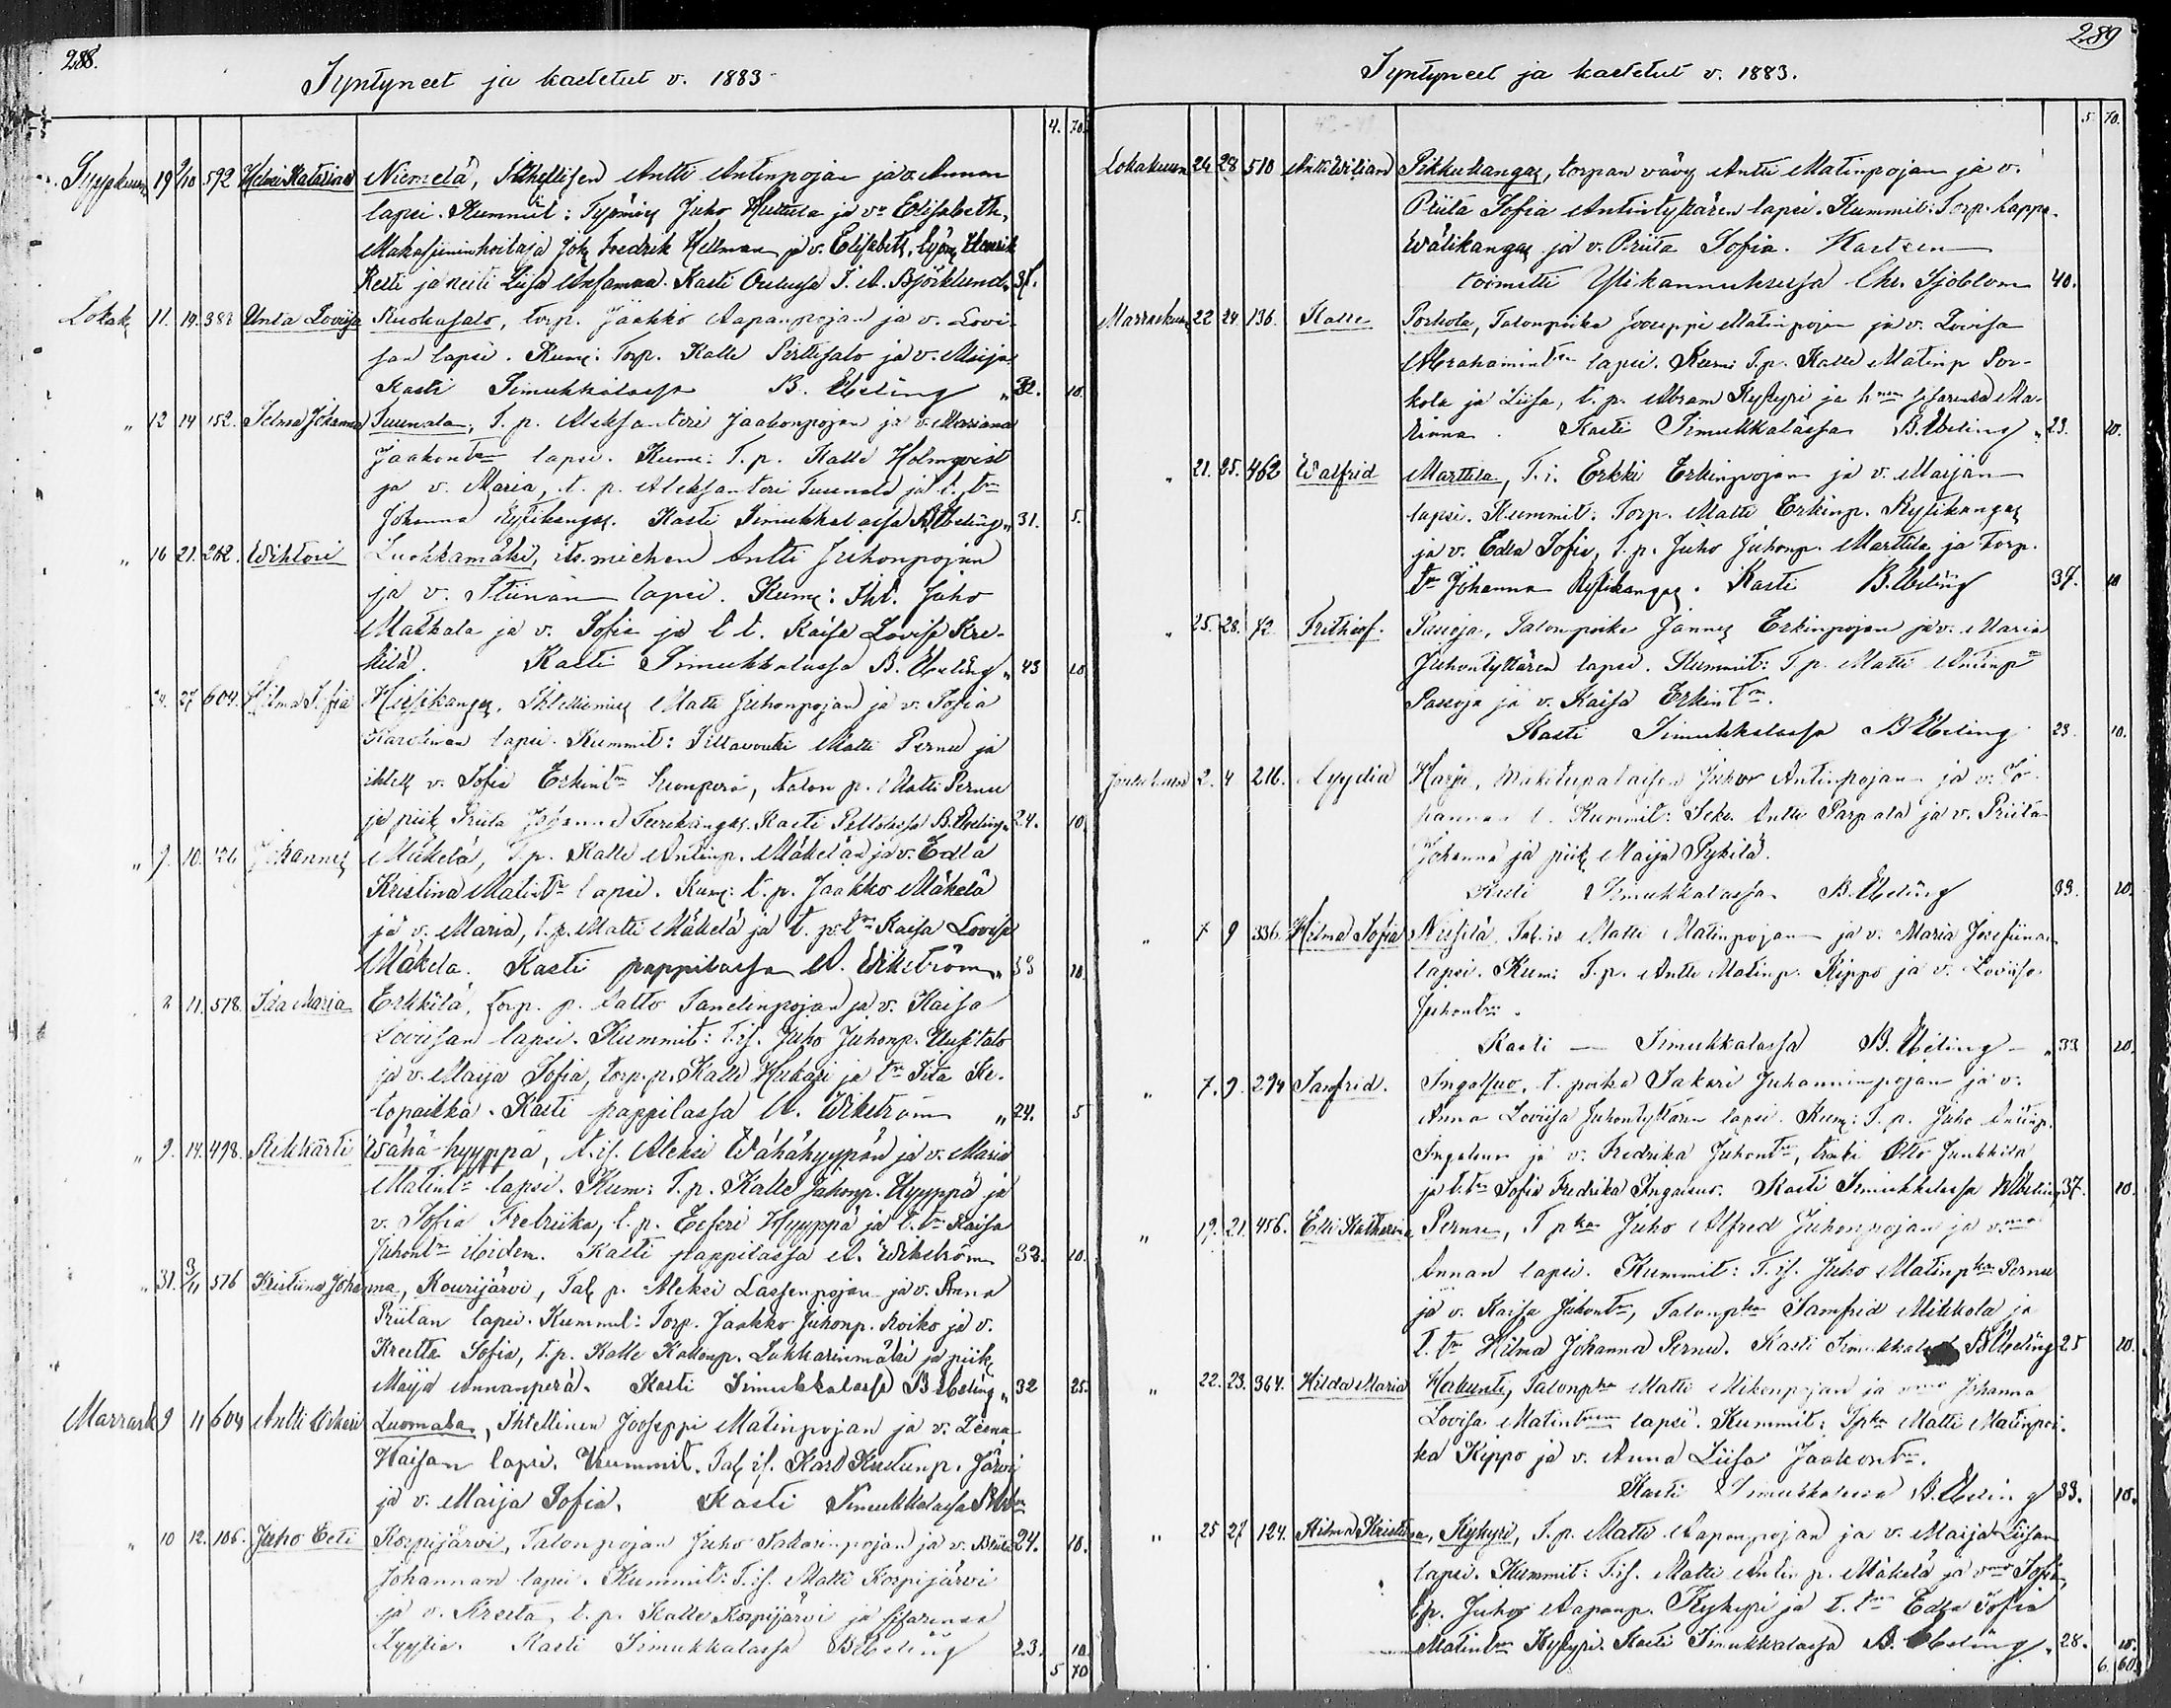 288.
Syntyneet ja kastetut v. 1883
4. 70.
Syyskuun 19 9/10 592 Helmi Katarina Niemelä, Itsellisen Antti Antinpojan ja v. Annan
lapsi. Kummit: Työmies Juho Huttula ja vo Elisabeth,
Makasiininhoitaja Joh. Fredrik Hellman ja v. Elisabeth, Henrik
Kesti ja neiti Liisa. Kasti Oulussa J. A. Björklund. 31.
Lokak. 11. 19. 383 Unta Loviisa Ruokosalo, torp. Jaakko Aapanpojan ja v. Lovi-
san lapsi. Kum: Torp. Kalle Pirttisalo ja v. Maija.
Kasti Simukkalassa B. Ebeling " 32. 10.
" 12 14 152. Selma Johanna Tuunala, T. p. Aleksanteri Jaakonpojan ja v. Mariana
Jaakontn lapsi. Kum: T. p. Kalle Holmqvist
ja v. Maria, t. p. Aleksanteri Tuunala ja t. tr
Johanna Rytikangas. Kasti Simukkalassa B. Ebeling " 31. 5.
" 16 21. 212. Wihtori Luokkamäki, its. miehen Antti Juhonpojan
ja v. Stiinan lapsi. Kum: Itk. Juho
Matkala ja v. Sofia ja t. t. Kaisa Lovisa Kre-
kilä. Kasti Simukkalassa B. Ebeling " 43 10
24. 27 604. Hilma Sofia Hiesikangas, Itsellismies Matti Juhonpojan ja v. Sofia
Karolinan lapsi. Kummit: Siltavouti Matti Pernu ja
v. Sofia Erkintr, talon p. Matti Pernu
ja piik. Priita Johanna. Kasti Peltolassa B. Ebeling " 24. 10
" 9. 10. 126 Johannes Mäkelä, T. p. Kalle Antinp. Mäkelän ja v. Edla
Kristina Matintr lapsi. Kum: t. p. Jaakko Mäkelä
ja v. Maria, t. p. Matti Mäkelä ja t. p. tr Kaisa Lovisa
Mäkelä. Kasti pappilassa A. Wikström " 33 10.
11. 578. Ida Maria Erkkilä, torp. p. Tanelinpojan ja v. Kaisa
Loviisan lapsi. Kummit: T. is. Juho Juhonp. Uusitalo
ja v. Maija Sofia, torp. p. Kalle ja tr
topaikka. Kasti pappilassa A. Wikström " 24. 5
" 9. 14. 498. Rikkarti Wähä-hyyppä, t. is. Aleksi Wähähyypän ja v. Maria
Matintr lapsi. Kum: T. p. Kalle Juhonp. Hyyppä ja
v. Sofia Fretriika, t. p. Eeseri Hyyppä ja t. tr Kaisa
Juhontr. Kasti pappilassa A. Wikström 33. 10.
" 31. 3/11 576 Kristiina Johanna, Kourijärvi, Tal. p. Aleksi Lassenpojan ja v. Anna
Priitan lapsi. Kummit: Torp. Jaakko Juhonp. Roiko ja v.
Kreetta Sofia, t. p. Kalle Kallenp. Lukkarinmäki ja piik.
Maija Annanperä. Kasti Simukkalassa B. Ebeling " 32 25.
Marrask 9 11 604 Antti Oskari Luomala, Itsellinen Jooseppi Matinpojan ja v. Leena
Kaisan lapsi. Kummit. Tal. is. Karl Kustunp. Järvi
ja v. Maija Sofia. Kasti Simukkalassa
" 10 12. 106. Juho Eeti Korpijärvi, Talonpojan Juho Sakarinpojan ja v. Briita 24. 10.
Johannan lapsi. Kummit: T. is. Matti Korpijärvi
ja v. Kreeta, t. p. Kalle Korpijärvi ja sisarensa
Lyytia. Kasti Simukkalassa B. Ebeling 23. 10
5 70
289
Syntyneet ja kastetut v. 1883.
5 70.
Lokakuun 24 28 510 Antti Wiljam Pikkukangas, torpan vävy Antti Matinpojan ja v.
Priita Sofia Antintyttären lapsi. Kummit: Torp. Lappe-
Wälikangas ja v. Priita Sofia. Kasteen
toimitti Ylikannuksessa Chr. Sjöblom 40.
Marraskuun 22 24 136. Kalle Porkola, Talonpoika Jooseppi Matinpojan ja v. Loviisa
Abrahamintr lapsi. Kum: T. p. Kalle Matinp Por-
kola ja Liisa, t. p. Abram Kykyri ja hnen sisarensa Ma-
rianna. Kasti Simukkalassa B. Ebeling " 23. 10.
" 21. 25. 462 Walfrid Marttila, T. i. Erkki Erkinpojan ja v. Maijan
lapsi. Kummit: Torp. Matti Erkinp. Rytikangas
ja v. Edla Sofia, T. p. Juho Juhonp. Marttila ja torp.
tr Johanna Rytikangas. Kasti B. Ebeling 37. 10
" 25. 28. 72 Frithiof. Pasoja, Talonpoika Jannes Erkinpojan ja v. Maria
Juhontyttären lapsi. Kummit: T. p. Matti Antinp
Pasoja ja v. Kaisa Erkintr.
Kasti Simukkalassa B. Ebeling 23. 10.
Joulukuun 2. 4 216. Lyydia Harju, Mäkitupalaisen Juhon Antinpojan ja v. Jo-
hannan l. Kummit: Antti Parpala ja v. Priita
Johanna ja piik. Maija Pykilä.
Kasti Simukkalassa B. Ebeling 33. 10.
" 7 9 336. Hilma Sofia Niisilä, Tal. is Matti Matinpojan ja v. Maria Josefiinan
lapsi. Kum: T. p. Antti Matinp. Kippo ja v. Loviisa
Juhontr.
Kasti — Simukkalassa B. Ebeling — " 33 10.
" 7. 9. 294 Samfrid. Ingalsuo, t. poika Sakari Juhanninpojan ja v.
Anna Loviisa Juhontyttären lapsi. Kum: T. p. Juho Antinp.
Ingalsuo ja v. Fredrika Juhontr, Otto Junkkila
ja t. tr Sofia Fredrika Ingalsuo. Kasti Simukkalassa B. Ebeling 37. 10.
" 19. 21. 456. Elli Katharina Pernu, T pka Juho Alfred Juhonpojan ja v.
Annan lapsi. Kummit: T. is. Juho Matinpka Pernu
ja v. Kaisa Juhontr, Talonpka Samfrid Mikkola ja
T. tr Hilma Johanna Pernu. Kasti Simukkalassa B. Ebeling 25 10.
" 22. 23. 364. Hilda Maria Hakunti, Talonpka Matti Mikonpojan ja Johanna
Lovisa Matintren lapsi. Kummit: Tpka Matti Matinpoi-
ka Kippo ja v. Anna Liisa Jaakontr.
Kasti Simukkalassa B. Ebeling 33. 10.
" 25 27 124. Hilma Kristiina, Kykyri, T. p. Matti Aaponpojan ja v. Maija Liisan
lapsi. Kummit: T. is. Matti Antin p. Mäkelä ja Sofia,
t. p. Juho Aapanp. Kykyri ja t. tr Edla Sofia
Matintr Kykyri. Kasti Simukkalassa B. Ebeling " 28. 10.
6. 60.